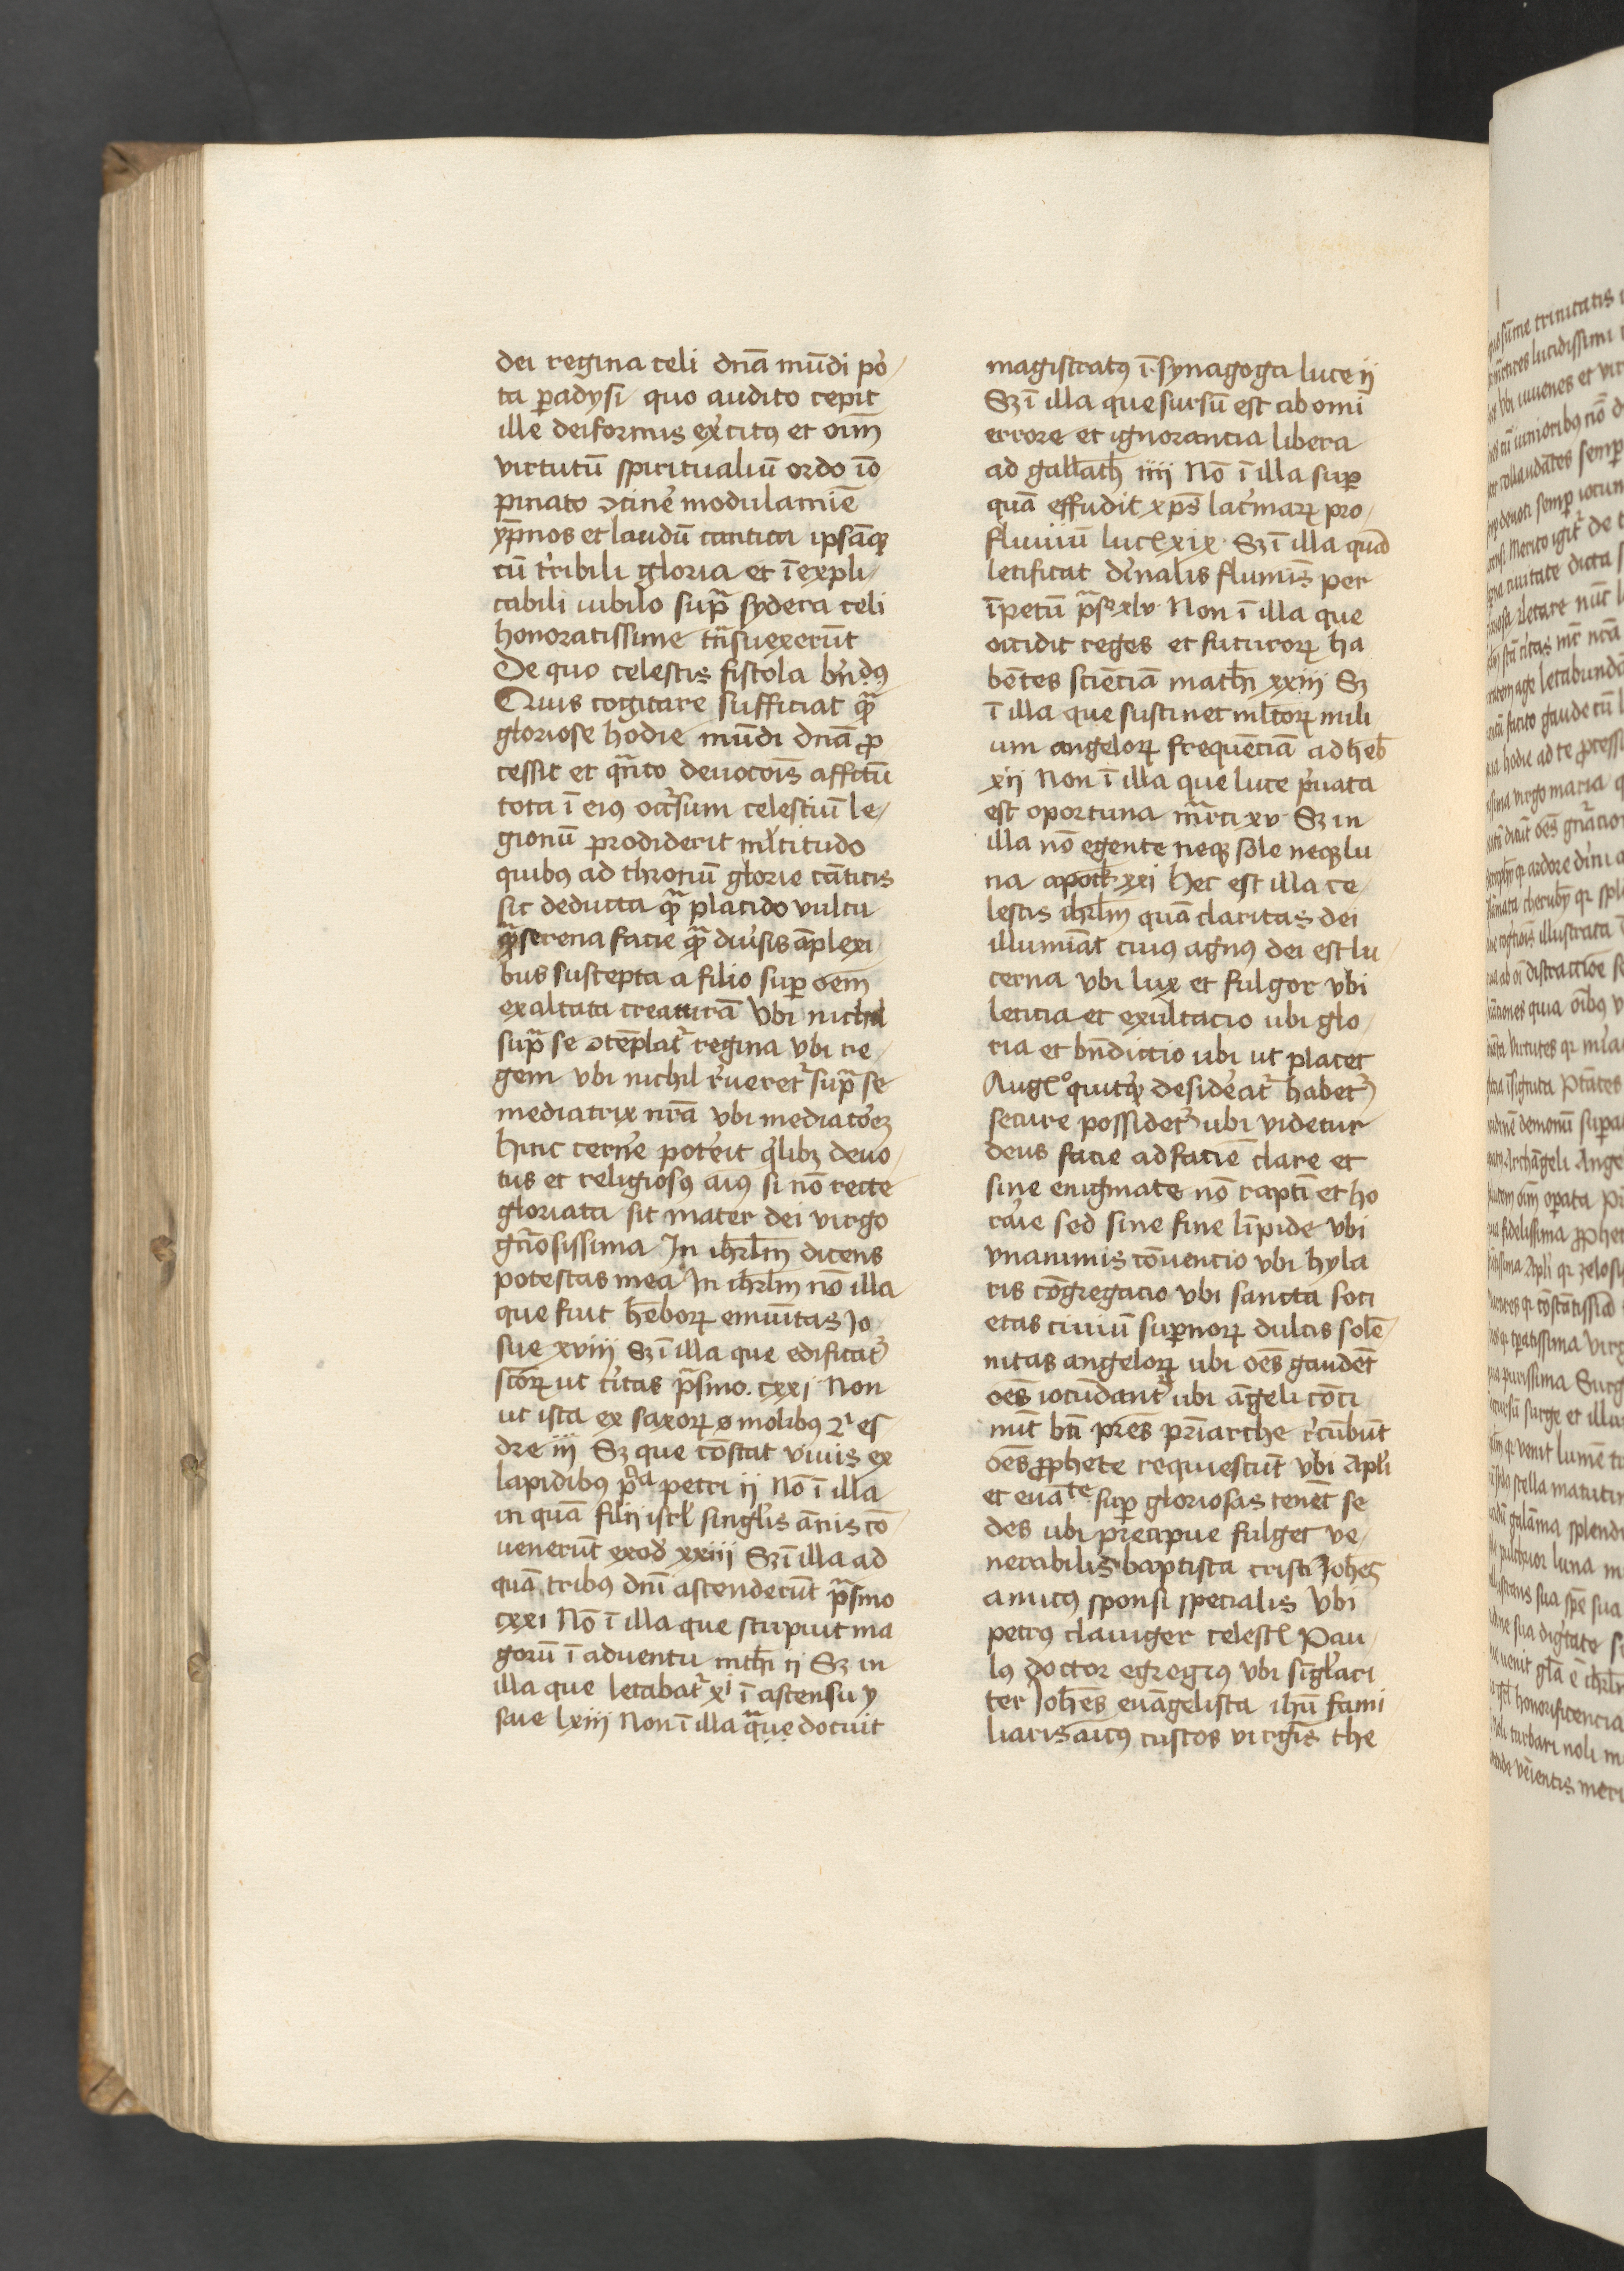 dei regina celi dnā mūdi po
ta ꝑadysi quo audito cepit
ille deiformis ex̾citꝰ et oim̄
virtutū spiritualiū ordo īo
pinato ↄtine̾ modulamīe
yp̄nos et laudū cantica ipsāqꝫ
cū t̾ribili gloria et īexpli
cabili iubilo supᷓ sydera celi
honoratissime tn̄suexerūt
De quo celestis fistola bn̄dꝰ
Quis cogitare sufficiat qᷓ
gloriose hodie mūdi dnā ꝓ
cessit et qᷓnto deuotōis affc̄tu
tota ī eiꝰ occ̾sum celestiū le
gionū prodiderit ml̾titudo
quibꝰ ad thronū glorie cāticis
sic deducta qᷓ placido vultu
qᷓ serena facie qᷓ diu̾sis āplexi
bus suscepta a filio suꝑ oēm
exaltata creaturā Vbi nichil
supᷓ se ↄtēplat᷑ regina vbi re
gem vbi nichil r̾ueret᷑ supᷓ se
mediatrix nrā vbi mediatōrē
hinc cerne̾ pote̾it qⁱlibꝫ deuo
tus et religiosꝰ aīꝰ si nō recte
gloriata sit mater dei virgo
gn̄osissima In ihrlm̄ dicens
potestas mea In ihrlm̄ nō illa
que fuit hēborꝝ emūitas Jo
sue xviij Sꝫ ī illa que edificat᷑
scōrꝝ ut c̾itas pᷓsmo. cxxi Non
ut ista ex saxorꝝ molibꝰ 2ⁱ es
dre iij Sꝫ que cōstat viuis ex
lapidibꝰ pᵃ petri ij Nō ī illa
in quā filij isrl̾ singl̾is ānis cō
uenerūt exod̾ xxiij Sꝫ ī illa ad
quā tribꝰ dnī ascenderūt pᷓsmo
cxxi Nō ī illa que stupuit ma
gorū ī aduentu mth̄i ij Sꝫ in
illa que letabat᷑ xⁱ ī ascensu y
saie lxiij Non ī illa qᷓue docuit
magistratꝰ ī synagoga luce ij
Sꝫ ī illa que sursū est ab omī
errore et ignorancia libera
ad gallath̄ iiij Nō ī illa suꝑ
quā effudit xp̄s lac̾marꝝ pro
fluuiū luc̾ xix Sꝫ ī illa quā
letificat di̾nalis flumīs per
īpetū pᷓs xlv Non ī illa que
occidit reges et futurorꝝ ha
bētes sciēciā math̄i xxiij Sꝫ
ī illa que sustinet ml̾torꝝ mili
um angelorꝝ frequēciā ad heb̄
xij Non ī illa que luce p̾uata
est oportuna mᷓrci xv Sꝫ in
illa nō egente neqꝫ sole neqꝫ lu
na apoc̾ xxi Hec est illa ce
lestis ihrlm̄ quā claritas dei
illumiāt cuius agnꝰ dei est lu
cerna vbi lux et fulgor vbi
leticia et exultacio ubi glo
ria et bn̄dictio ubi ut placet
Aug̾ᵒ quitqͥd deside̾at᷑ habet᷑
secure possidet᷑ ubi videtur
deus facie ad faciē clare et
sine enigmate nō raptī et ho
ra̾ie sed sine fine līpide vbi
vnanimis cōuencio vbi hyla
ris cōgregacio vbi sancta soci
etas ciuiū suꝑnorꝝ dulcis solē
nitas angelorꝝ ubi oēs gaudēt
oēs iocūdant᷑ ubi āgeli cōci
nūt bn̄ pr̄es pr̄iarche r̾cūbūt
oēs ꝓphete requiescūt vbi Apl̾i
et euāᵗᵉ suꝑ gloriosas tenēt se
des ubi p̄recipue fulget ve
nerabilis baptista cristi Joh̄es
amicꝰ sponsi specialis Vbi
petrꝰ clauiger celest̾ Pau
lꝰ doctor egregiꝰ vbi sīgl̾ari
ter Joh̄es euāgelista ihū fami
liaris aīcꝰ custos virgīs the